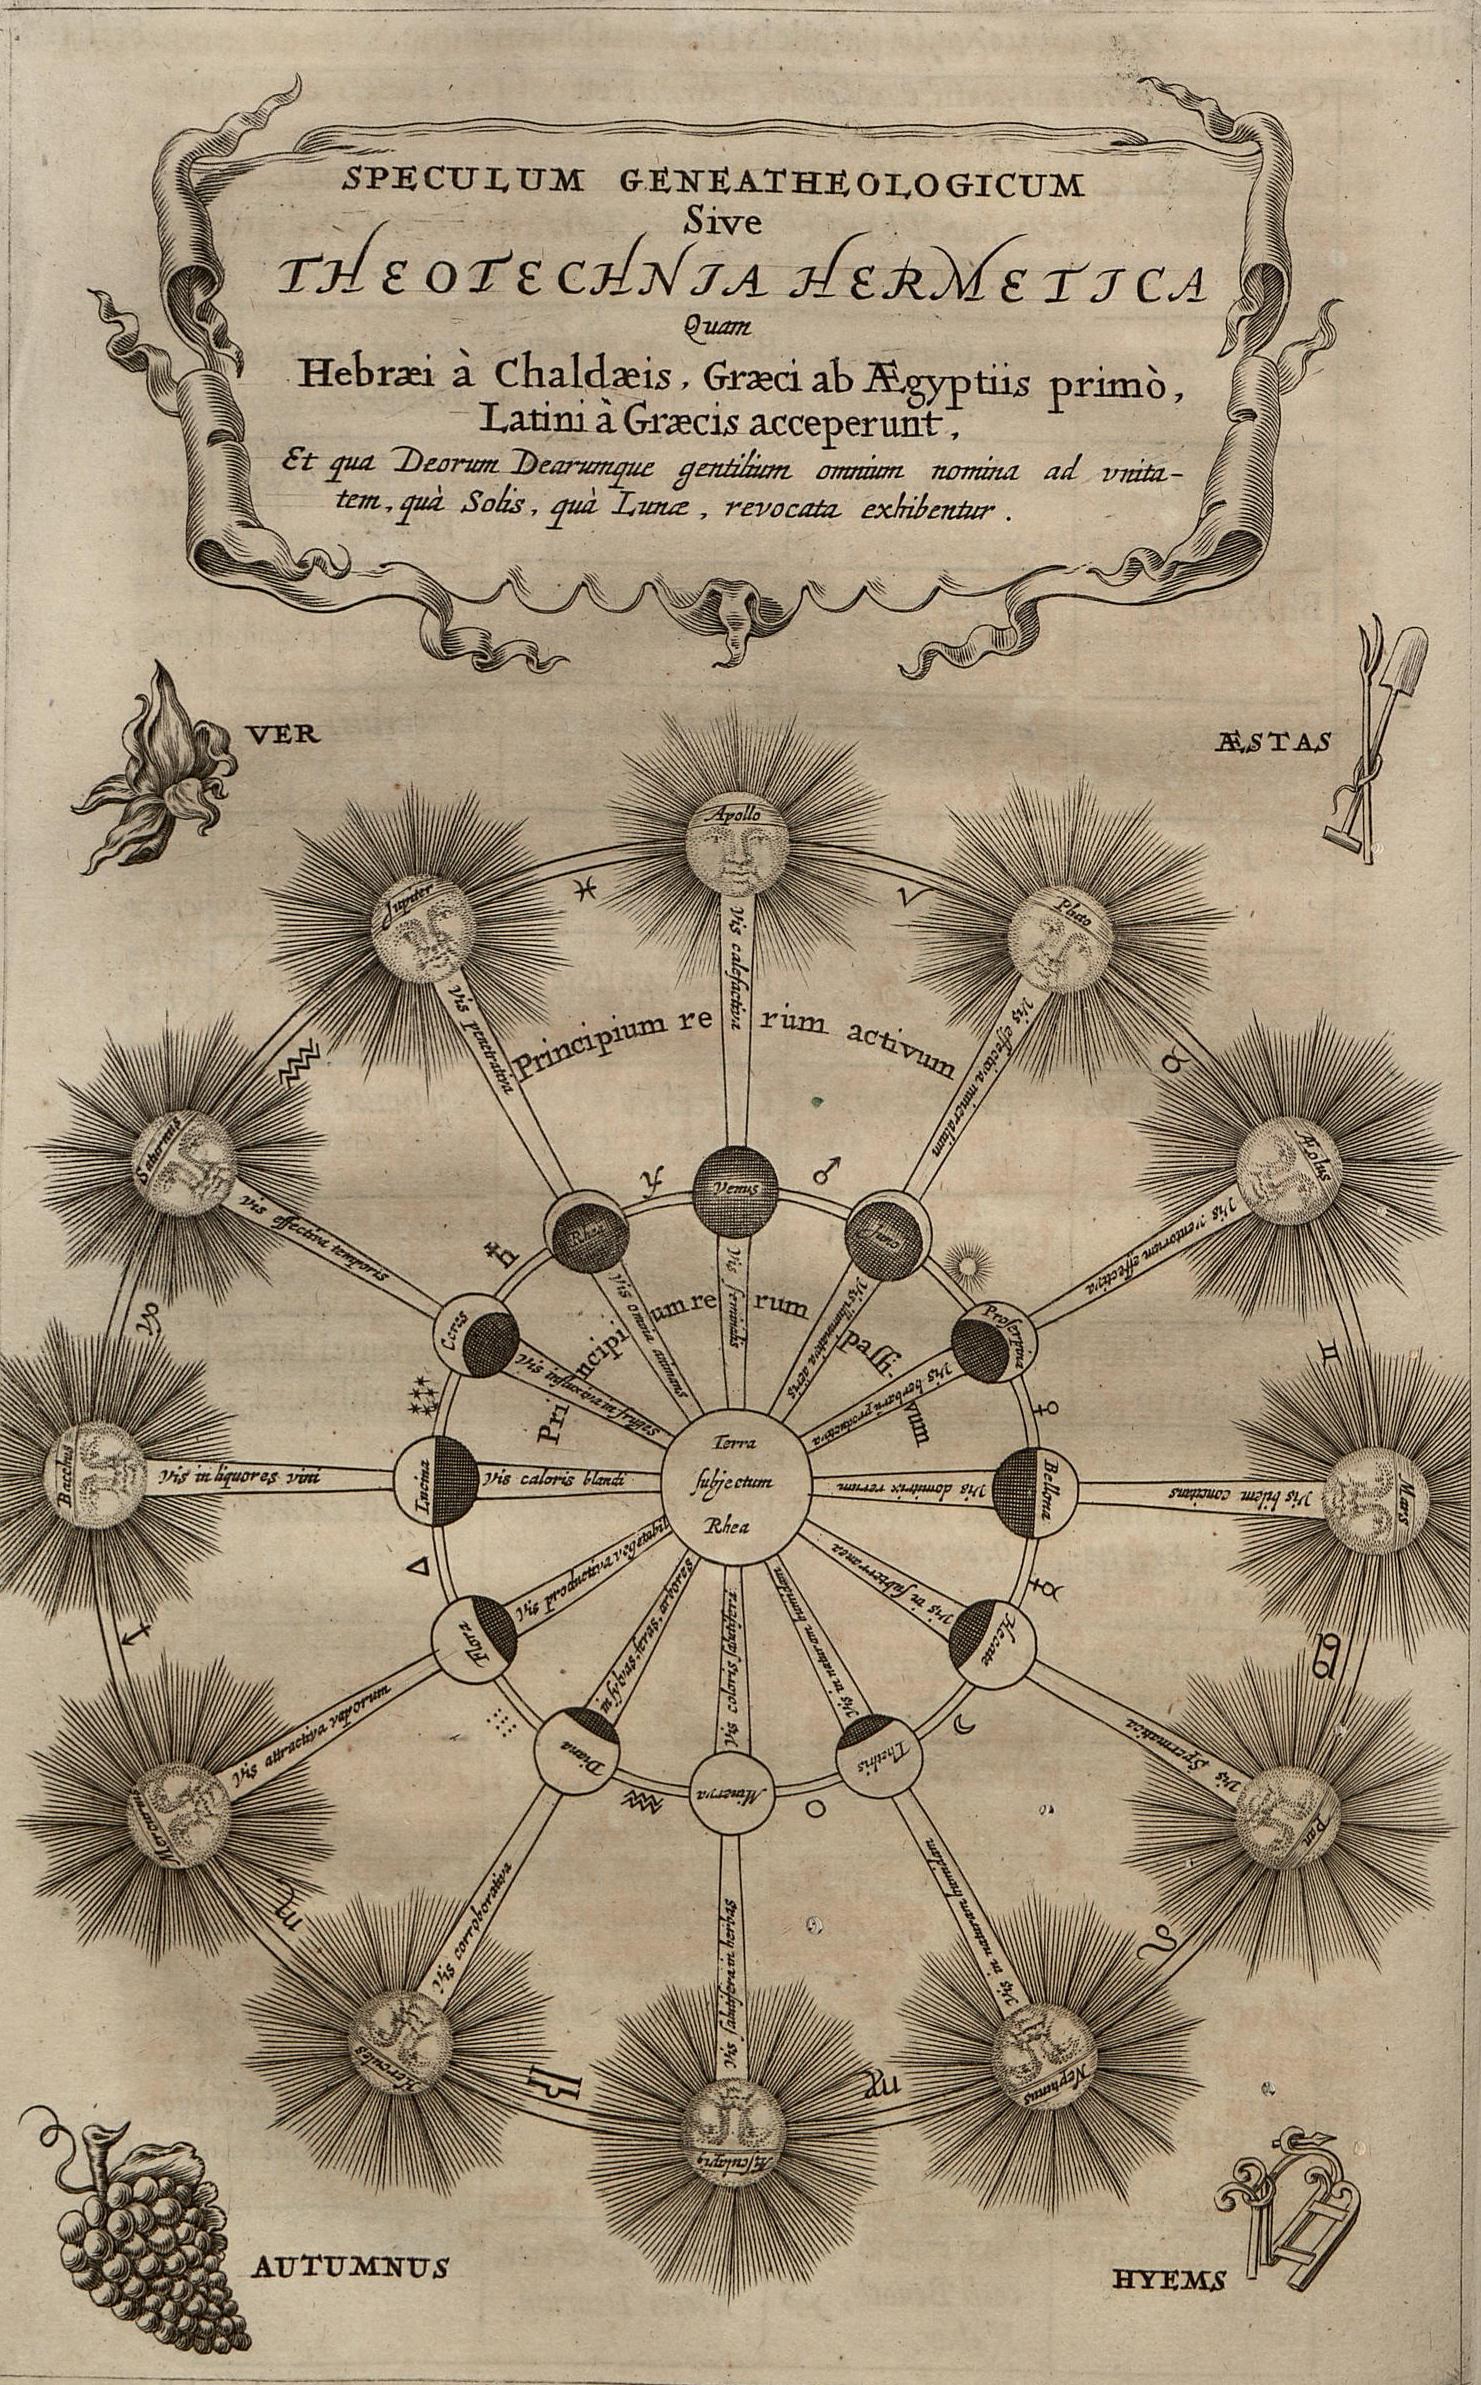 SPECULUM GENEATHEOLOGICUM
Sive
THEOTECHNIA HERMETICA
Quam
Hebræi à Chaldæis, Græci ab Ægyptiis primò,
Latini à Græcis acceperunt,
Et qua Deorum Dearumque gentilium omnium nomina ad vnita-
tem, quà Solis, quà Lunæ, revocata exhibentur.
VER
ÆSTAS
Apollo
Jupiter
Pluto
Saturnus
Æolus
Bacchus
Mars
Mercurius
Pan
Hercules
Neptunus
Æsculapiꝰ
Vis calefactiva
Vis penetrativa
Vis effectiva mineralium
Vis effectiva temporis
Vis ventorum effectiva
Vis in liquores vini
Vis bilem concitans
Vis attractiva vaporum
Vis spermatica
Vis corroborativa
Vis in naturam humidam
Vis salutifera in herbas
Principium rerum activum
Venus
Rhea
Juno
Ceres
Proserpina
Lucina
Bellona
Flora
Hecate
Diana
Thetis
Minerva
Vis seminalis
Vis omnia animans
Vis illuminativa aeris
Vis influxiva in fruges
Vis herbarū productiva
Vis caloris blandi
Vis domitrix rerum
Vis productiva vegetabil
Vis in subterranea
in sylvas, feras, arbores
Vis in naturam humidam
Vis coloris salutifera
Principium rerum passivum
Terra
subjectum
Rhea
AUTUMNUS
HYEMS